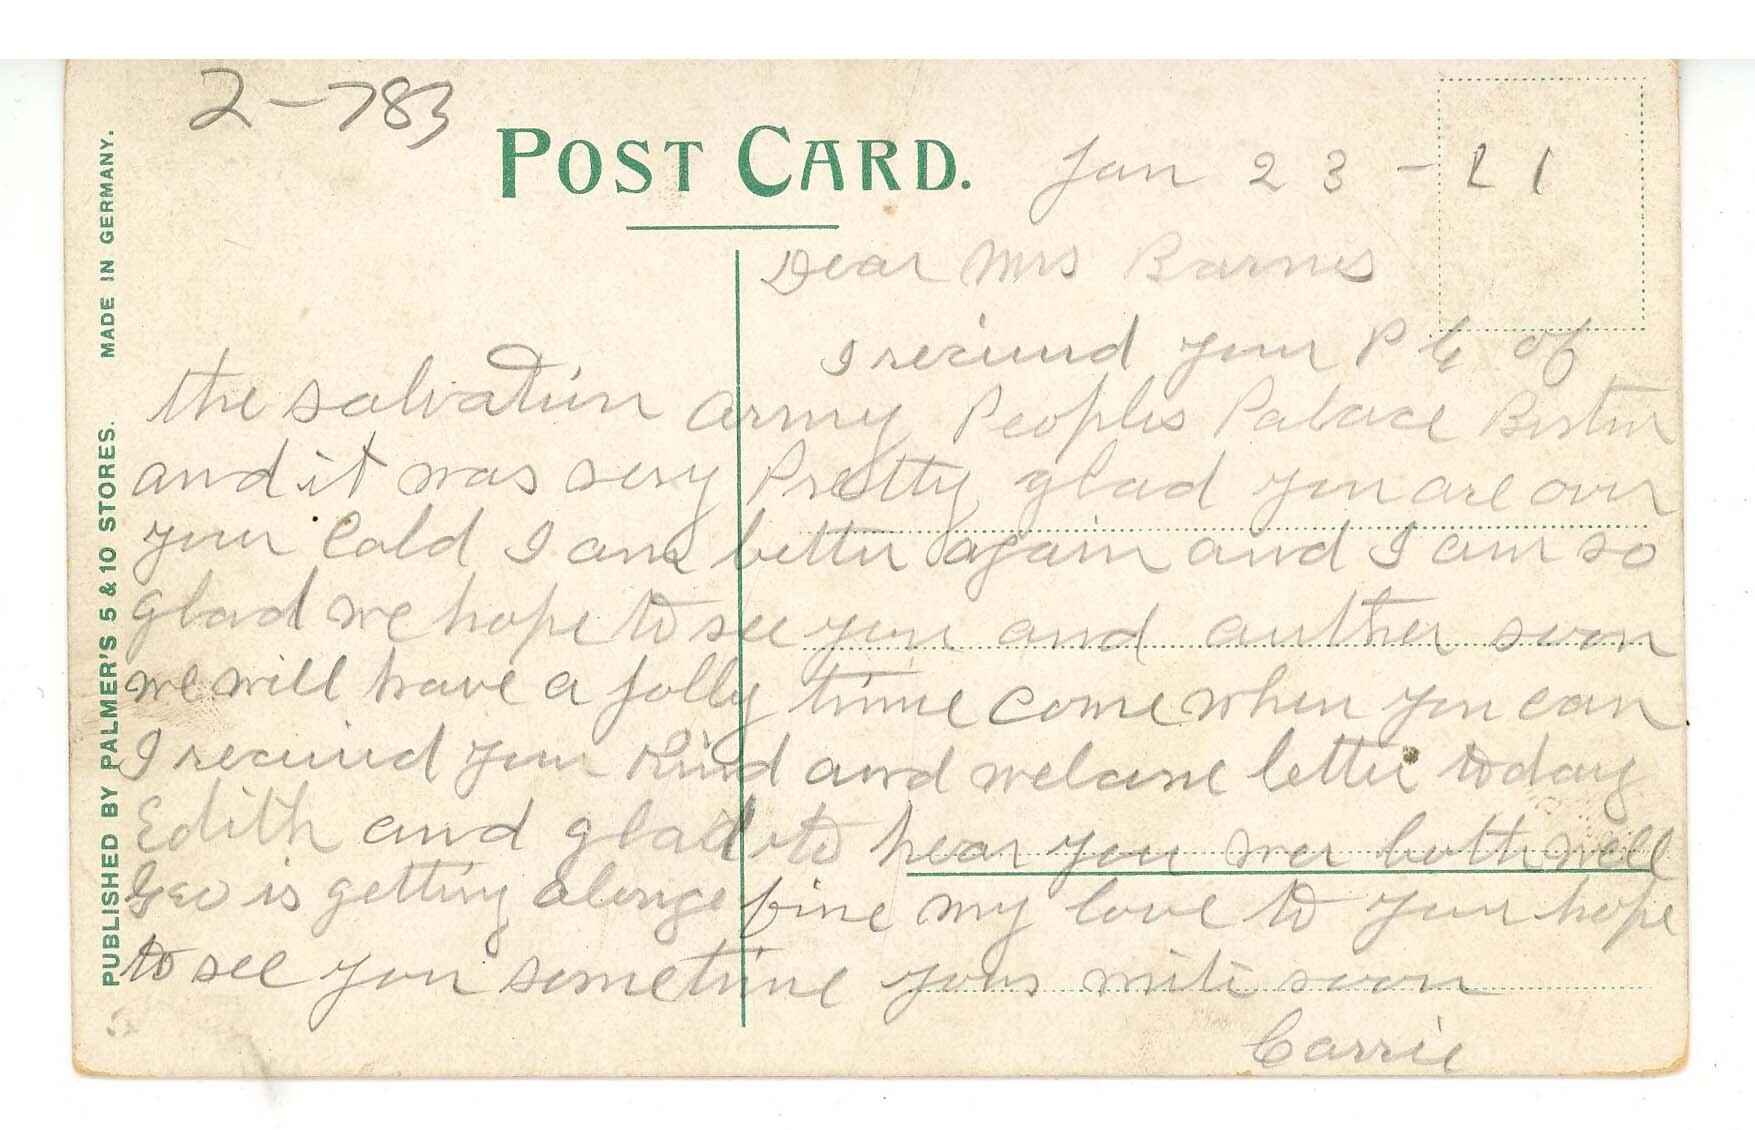 2-783
POST CARD.
Jan 23-21
Dear Mrs Barnes
I recieved your P C of
the salvation army Peoples Palace Boston
and it was very Pretty glad you are over
your Cold I am better again and I am so
glad we hope to see you and auther soon
we will have a jolly time come when you can
I recieved your kind and welcome letter today
Edith and glad to hear you wer both well
Geo is getting alonge fine my love to your hope
to see you sometime yours write soon
Carrie
PUBLISHED BY PALMER'S 5 & 10 STORES. MADE IN GERMANY.